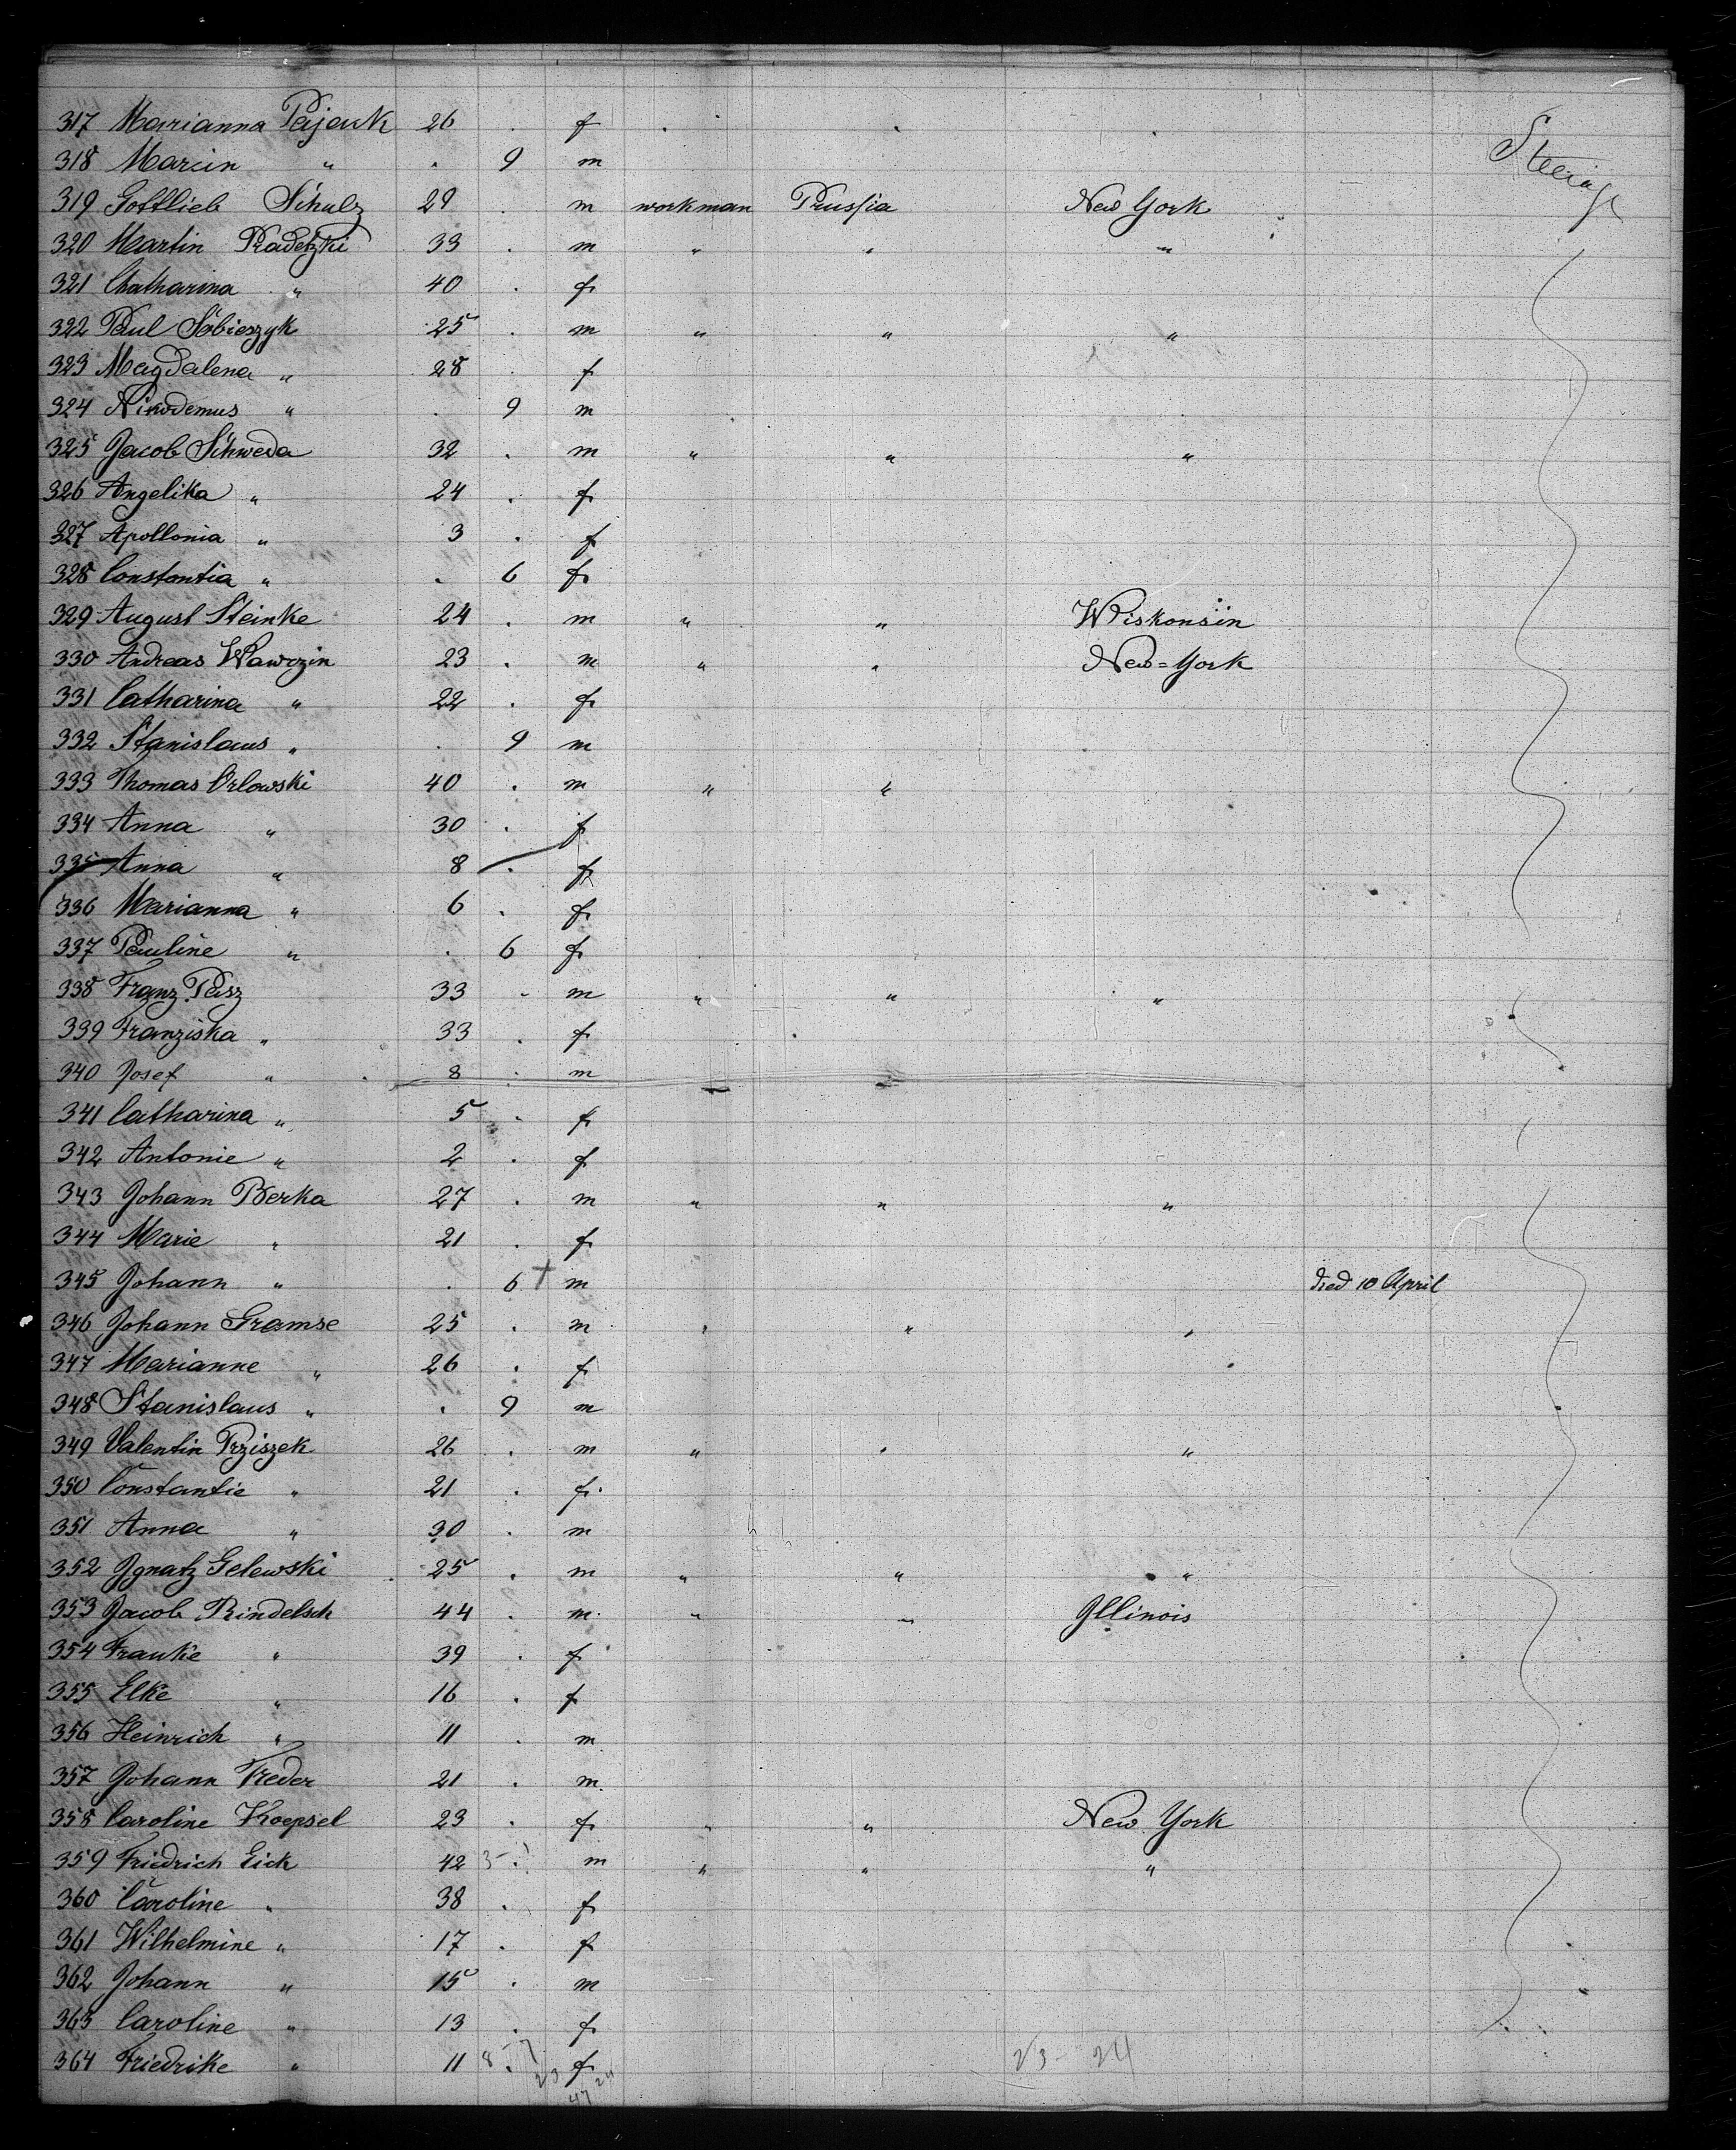 317 Marianna Pajank 26 . f . . .
Steerage
318 Marcin " . 9 m
319 Gottlieb Schulz 29 . m workman Prussia New York
320 Martin Pradetzki 33 . m " " "
321 Chatharina " 40 . f
322 Paul Sobieszyk 25 . m " " "
323 Magdalena " 28 . f
324 Nikodemus " . 9 m
325 Jacob Schweda 32 . m " " "
326 Angelika " 24 . f
327 Apollonia " 3 . f
328 Constantia " . 6 f
329 August Steinke 24 . m " " Wiskonsin
330 Andreas Wawrzin 23 . m " " New=York
331 Catharina " 22 . f
332 Stanislaus " . 9 m
333 Thomas Orlowski 40 . m " "
334 Anna " 30 . f
335 Anna " 8 . f
336 Marianna " 6 . f
337 Pauline " . 6 f
338 Franz Pasz 33 . m " " "
339 Franziska " 33 . f
340 Josef " 8 . m
341 Catharina " 5 . f
342 Antonie " 2 . f
343 Johann Berka 27 . m " " "
344 Marie " 21 . f
345 Johann " . 6 + m died 10 April
346 Johann Gramse 25 . m " " "
347 Marianne " 26 . f
348 Stanislaus " . 9 m
349 Valentin Prziszek 26 . m " " "
350 Constantie " 21 . f
351 Anna " 30 . m
352 Ignatz Gelewski 25 . m " " "
353 Jacob Rindelsch 44 . m " " Illinois
354 Frauke " 39 . f
355 Elke " 16 . f
356 Heinrich " 11 . m
357 Johann Treder 21 . m
358 Caroline Koepsel 23 . f " " New York
359 Friedrich Eick 42 3- . m " " "
360 Caroline " 38 . f
361 Wilhelmine " 17 . f
362 Johann " 15 . m
363 Caroline " 13 . f
364 Friedrike " 11 8-7 f 23-24
23 24
47